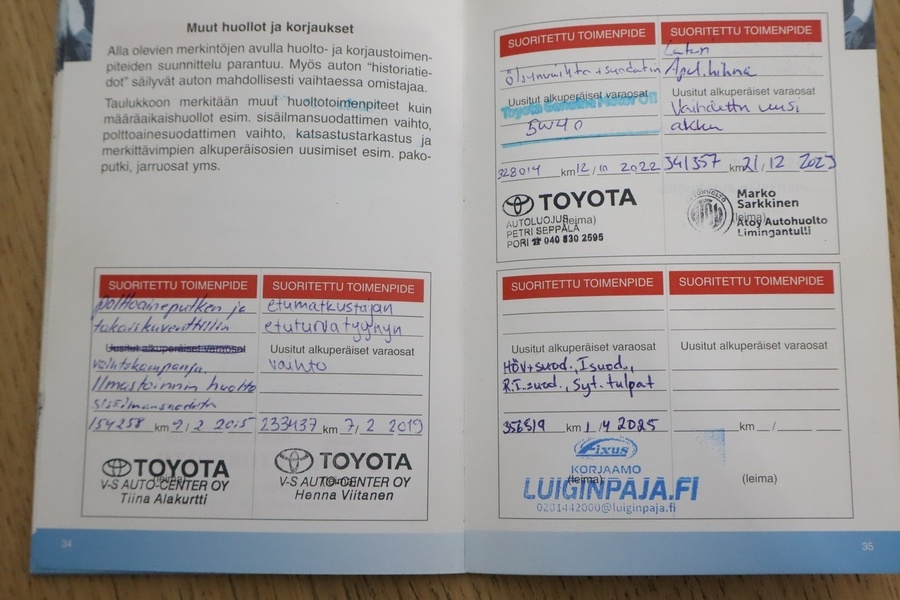 Muut huollot ja korjaukset
Alla olevien merkintöjen avulla huolto- ja korjaustoimen-
piteiden suunnittelu parantuu. Myös auton "historiatie-
dot" säilyvät auton mahdollisesti vaihtaessa omistajaa.
Taulukkoon merkitään muut huoltotoimenpiteet kuin
määräaikaishuollot esim. sisäilmansuodattimen vaihto,
polttoainesuodattimen vaihto, katsastustarkastus ja
merkittävimpien alkuperäisosien uusimiset esim. pako-
putki, jarruosat yms.
SUORITETTU TOIMENPIDE
polttoaineputken ja
takaiskuventtiilin
Uusitut alkuperäiset varaosat
vaihtokampanja.
Ilmastoinnin huolto
154258 km 9/2 2015
(leima)
TOYOTA
V-S AUTO-CENTER OY
Tiina Alakurtti
SUORITETTU TOIMENPIDE
etumatkustajan
etuturvatyynyn
Uusitut alkuperäiset varaosat
vaihto
233437 km 7/2 2019
(leima)
TOYOTA
V-S AUTO-CENTER OY
Henna Viitanen
34
SUORITETTU TOIMENPIDE
Öljynvaihto + suodatin
Uusitut alkuperäiset varaosat
5W40
328014 km 12/10 2022
TOYOTA
(leima)
AUTOLUOJUS
PETRI SEPPÄLÄ
PORI ☎ 040 830 2595
SUORITETTU TOIMENPIDE
Apul.hihna
Uusitut alkuperäiset varaosat
Vaihdettu uusi
akku
341357 km 21/12 2023
(leima)
Marko
Sarkkinen
Atoy Autohuolto
Limingantulli
SUORITETTU TOIMENPIDE
Uusitut alkuperäiset varaosat
HÖV+suod., I suod.,
R.I.suod., Syt.tulpat
356519 km 1/4 2025
Fixus
KORJAAMO
(leima)
LUIGINPAJA.FI
0201442000@luiginpaja.fi
SUORITETTU TOIMENPIDE
Uusitut alkuperäiset varaosat
km /
(leima)
35